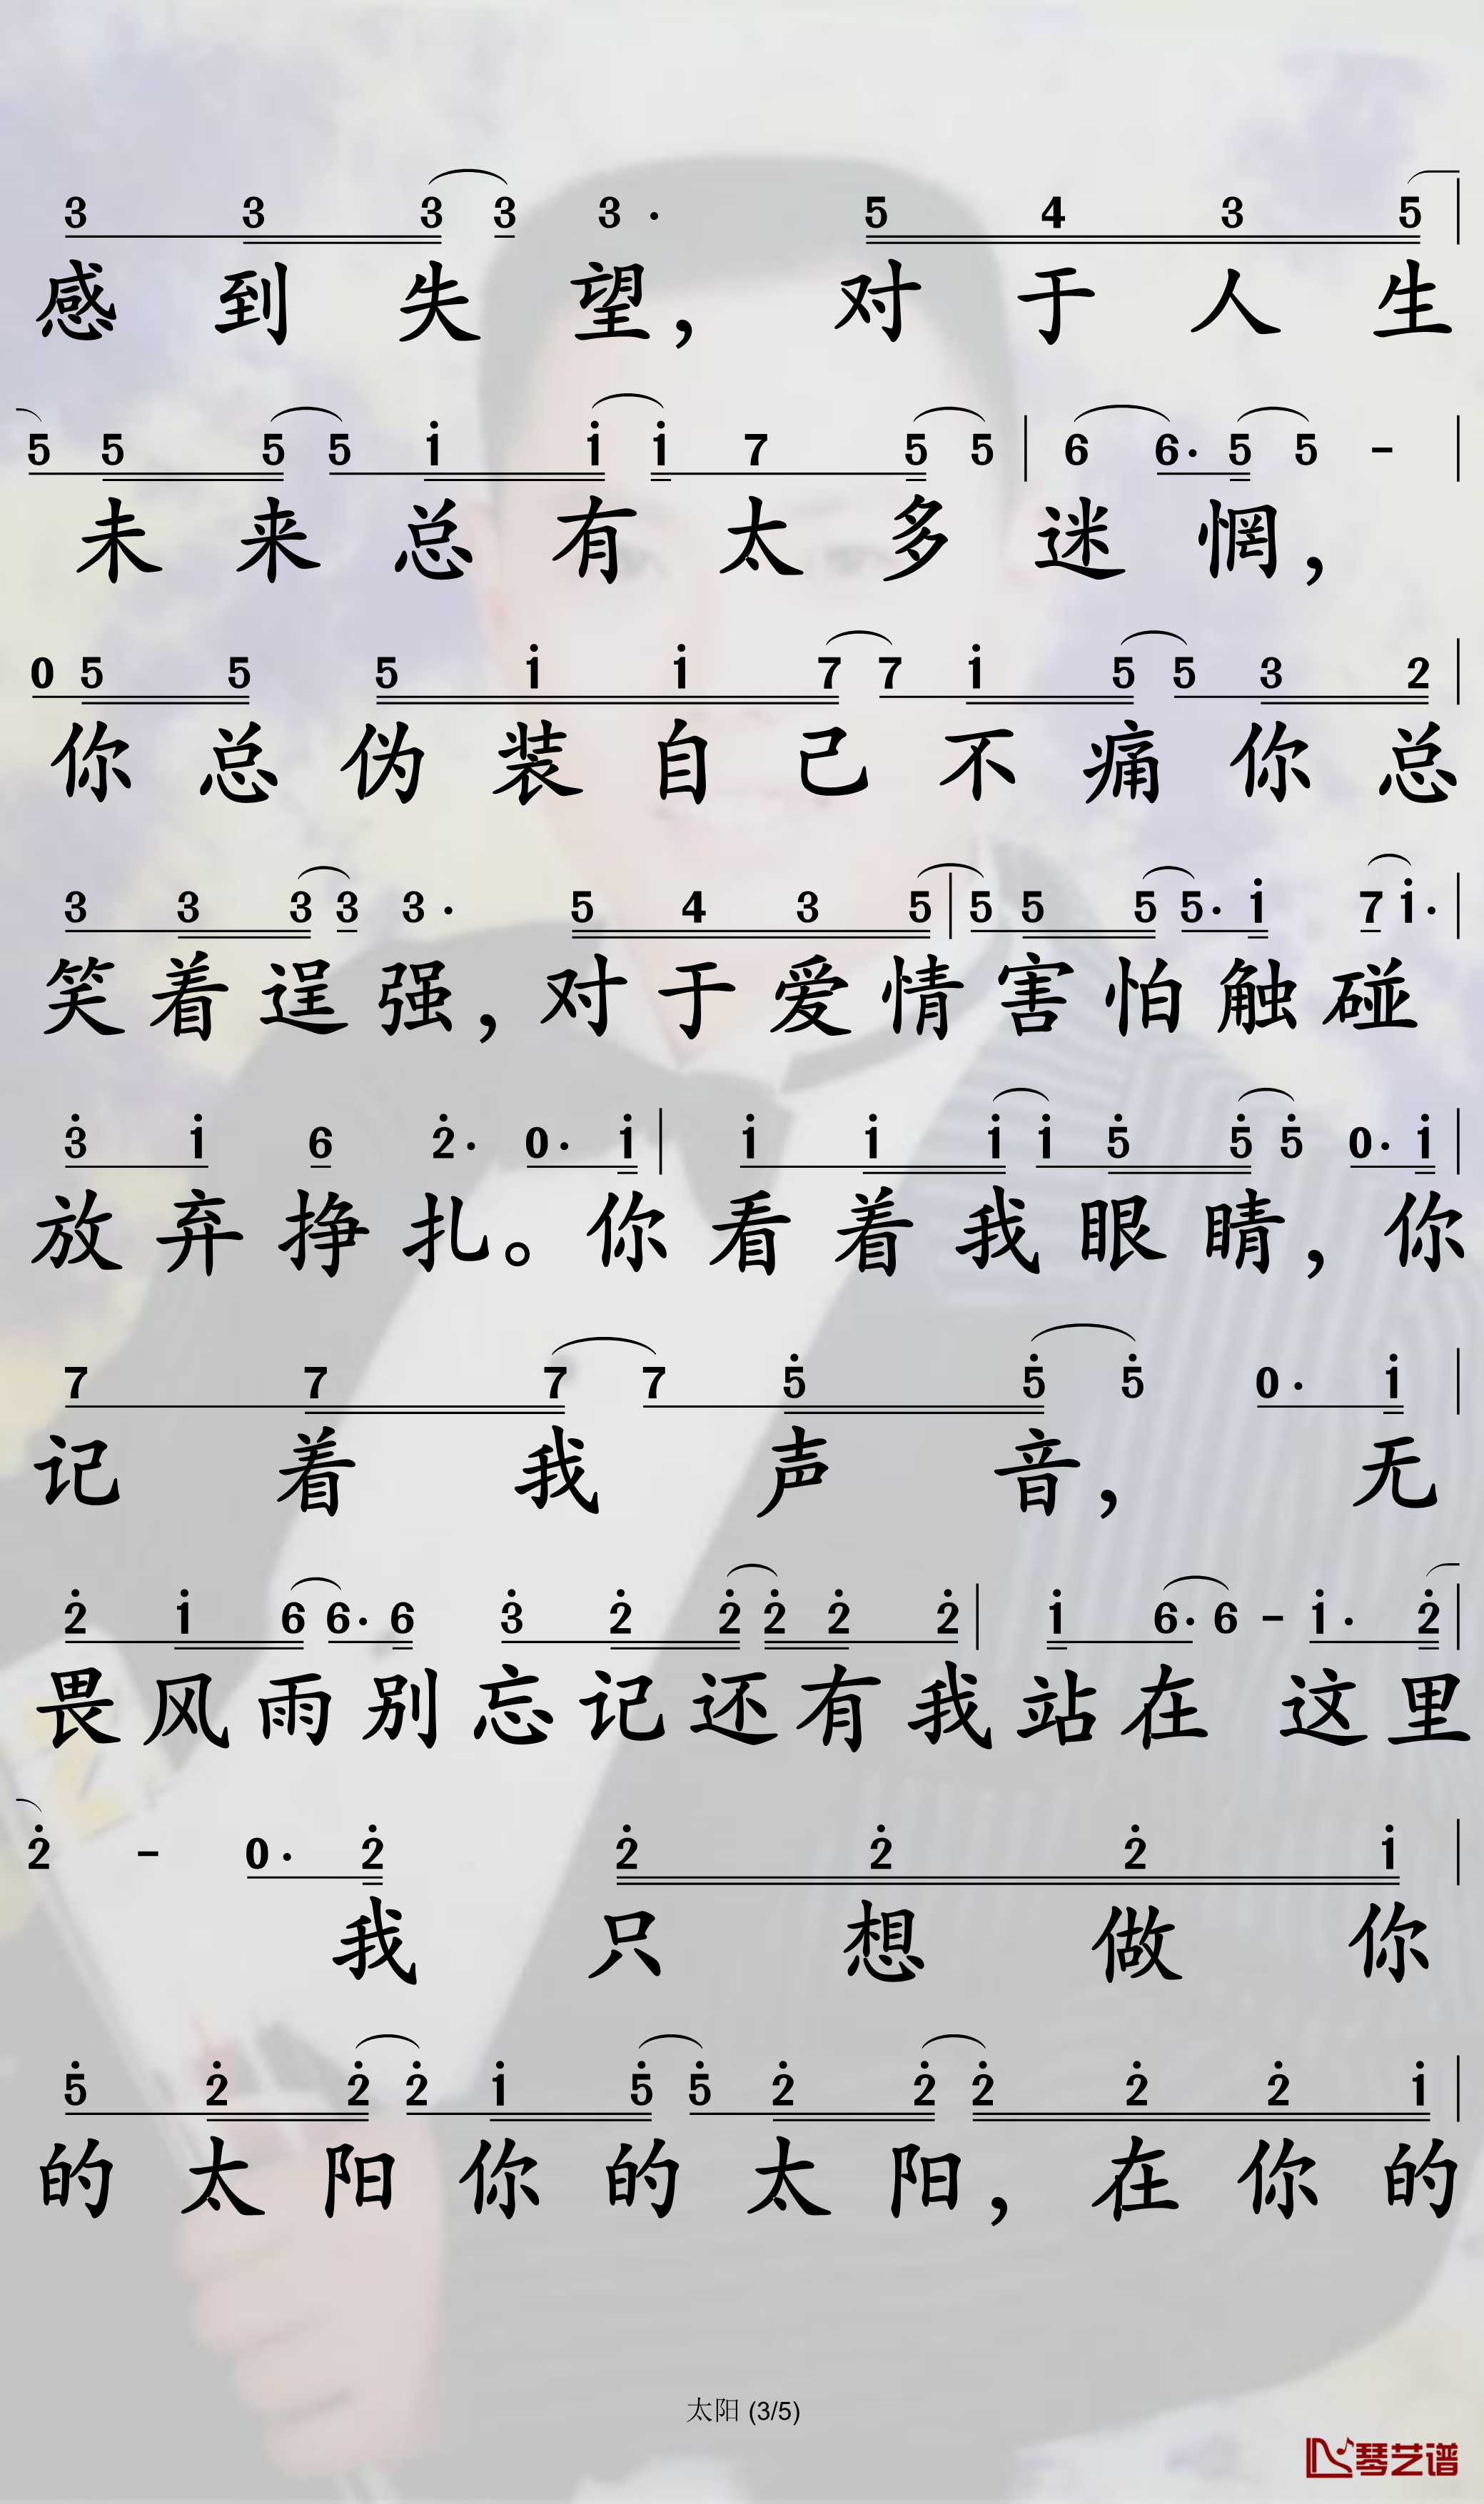 3 3 3 3 3· 5 4 3 5
感到失望，对于人生
5 5 5 5 i i i 7 5 5 | 6 6· 5 5 - |
未来总有太多迷惘，
0 5 5 5 i i 7 7 i 5 5 3 2 |
你总伪装自己不痛你总
3 3 3 3 3· 5 4 3 5 | 5 5 5 5· i 7 i· |
笑着逞强，对于爱情害怕触碰
3̇ i 6 2̇· 0· i | i i i i 5̇ 5̇ 5̇ 0· i |
放弃挣扎。你看着我眼睛，你
7 7 7 7 5̇ 5̇ 5̇ 0· i |
记着我声音，无
2̇ i 6 6· 6 3̇ 2̇ 2̇ 2̇ 2̇ 2̇ | i 6· 6 - i· 2̇ |
畏风雨别忘记还有我站在这里
2̇ - 0· 2̇ 2̇ 2̇ 2̇ i |
我只想做你
5̇ 2̇ 2̇ 2̇ i 5̇ 5̇ 2̇ 2̇ 2̇ 2̇ 2̇ i |
的太阳你的太阳，在你的
太阳 (3/5)
琴艺谱